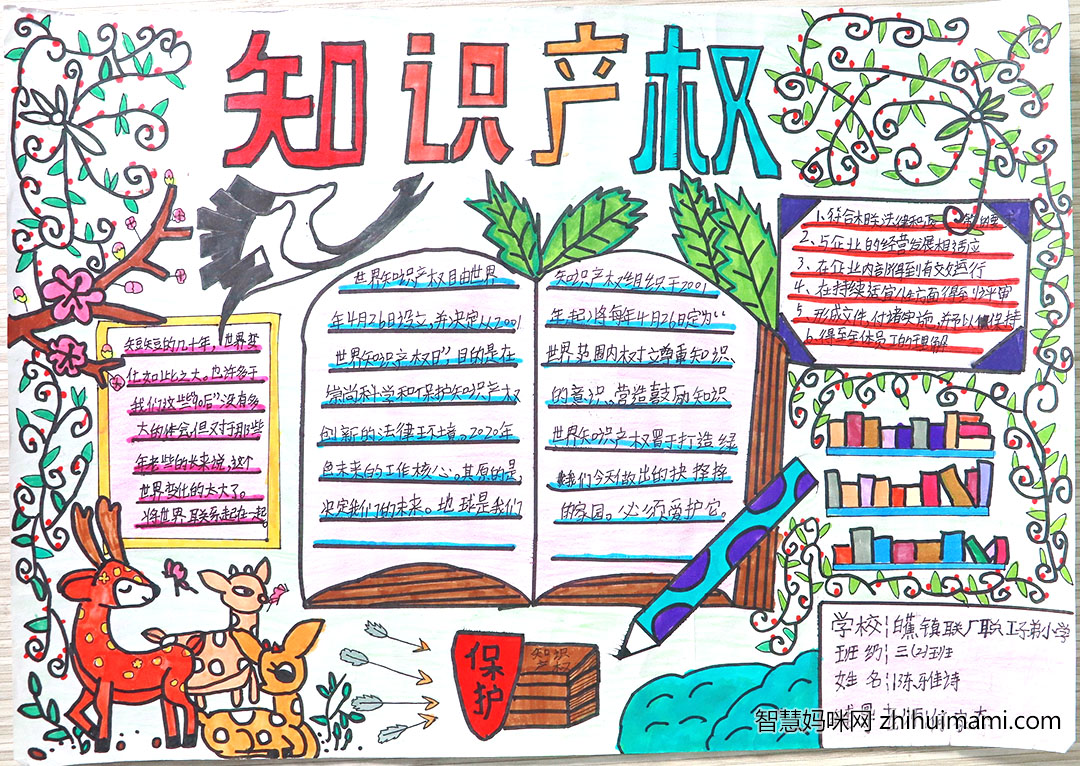 知识产权
短短的几十年，世界变
化如此之大。也许多于
我们这些"90后"没有多
大的体会，但对于那些
年长些的长来说，这个
世界变化的太大了。
将世界联系起在一起。
世界知识产权日由世界
年4月26日设立，并决定从2001
世界知识产权日”目的是在
崇尚科学和保护知识产权
创新的法律环境。2020年
色未来的工作核心。其原的是，
决定我们的未来。地球是我们
知识产权组织于2001
年起，将每年4月26日定为“
世界范围内树立尊重知识、
的意识、营造鼓励知识
世界知识产权置于打造绿
我们今天做出的抉择择
的家园。必须爱护它。
1、符合相关法律和
2、与企业的经营发展相适应
3、在企业内部得到有效运行
4、在持续适宜性方面得到
5、形成文件，付诸实施，并予以保持
6、得至全体员工的理解
保护
知识
产权
学校：白蕉镇联厂职工子弟小学
班级：三(2)班
姓名：陈乐佳诗
智慧妈咪网 zhihuimami.com